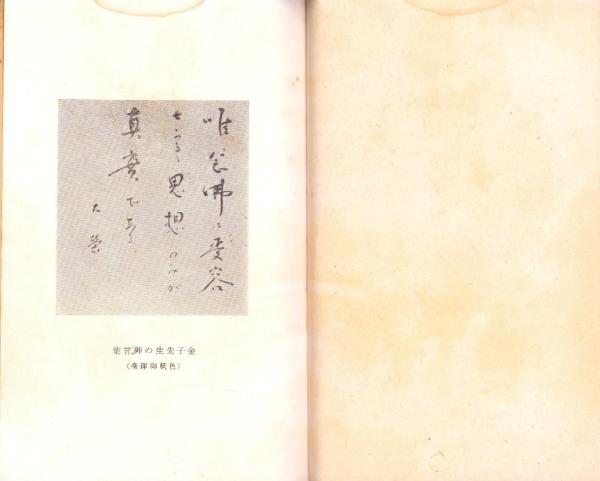 唯念佛に受容
せらるゝ思想のみが
真實である
大榮
金子先生の御言葉
(色紙御揮毫)